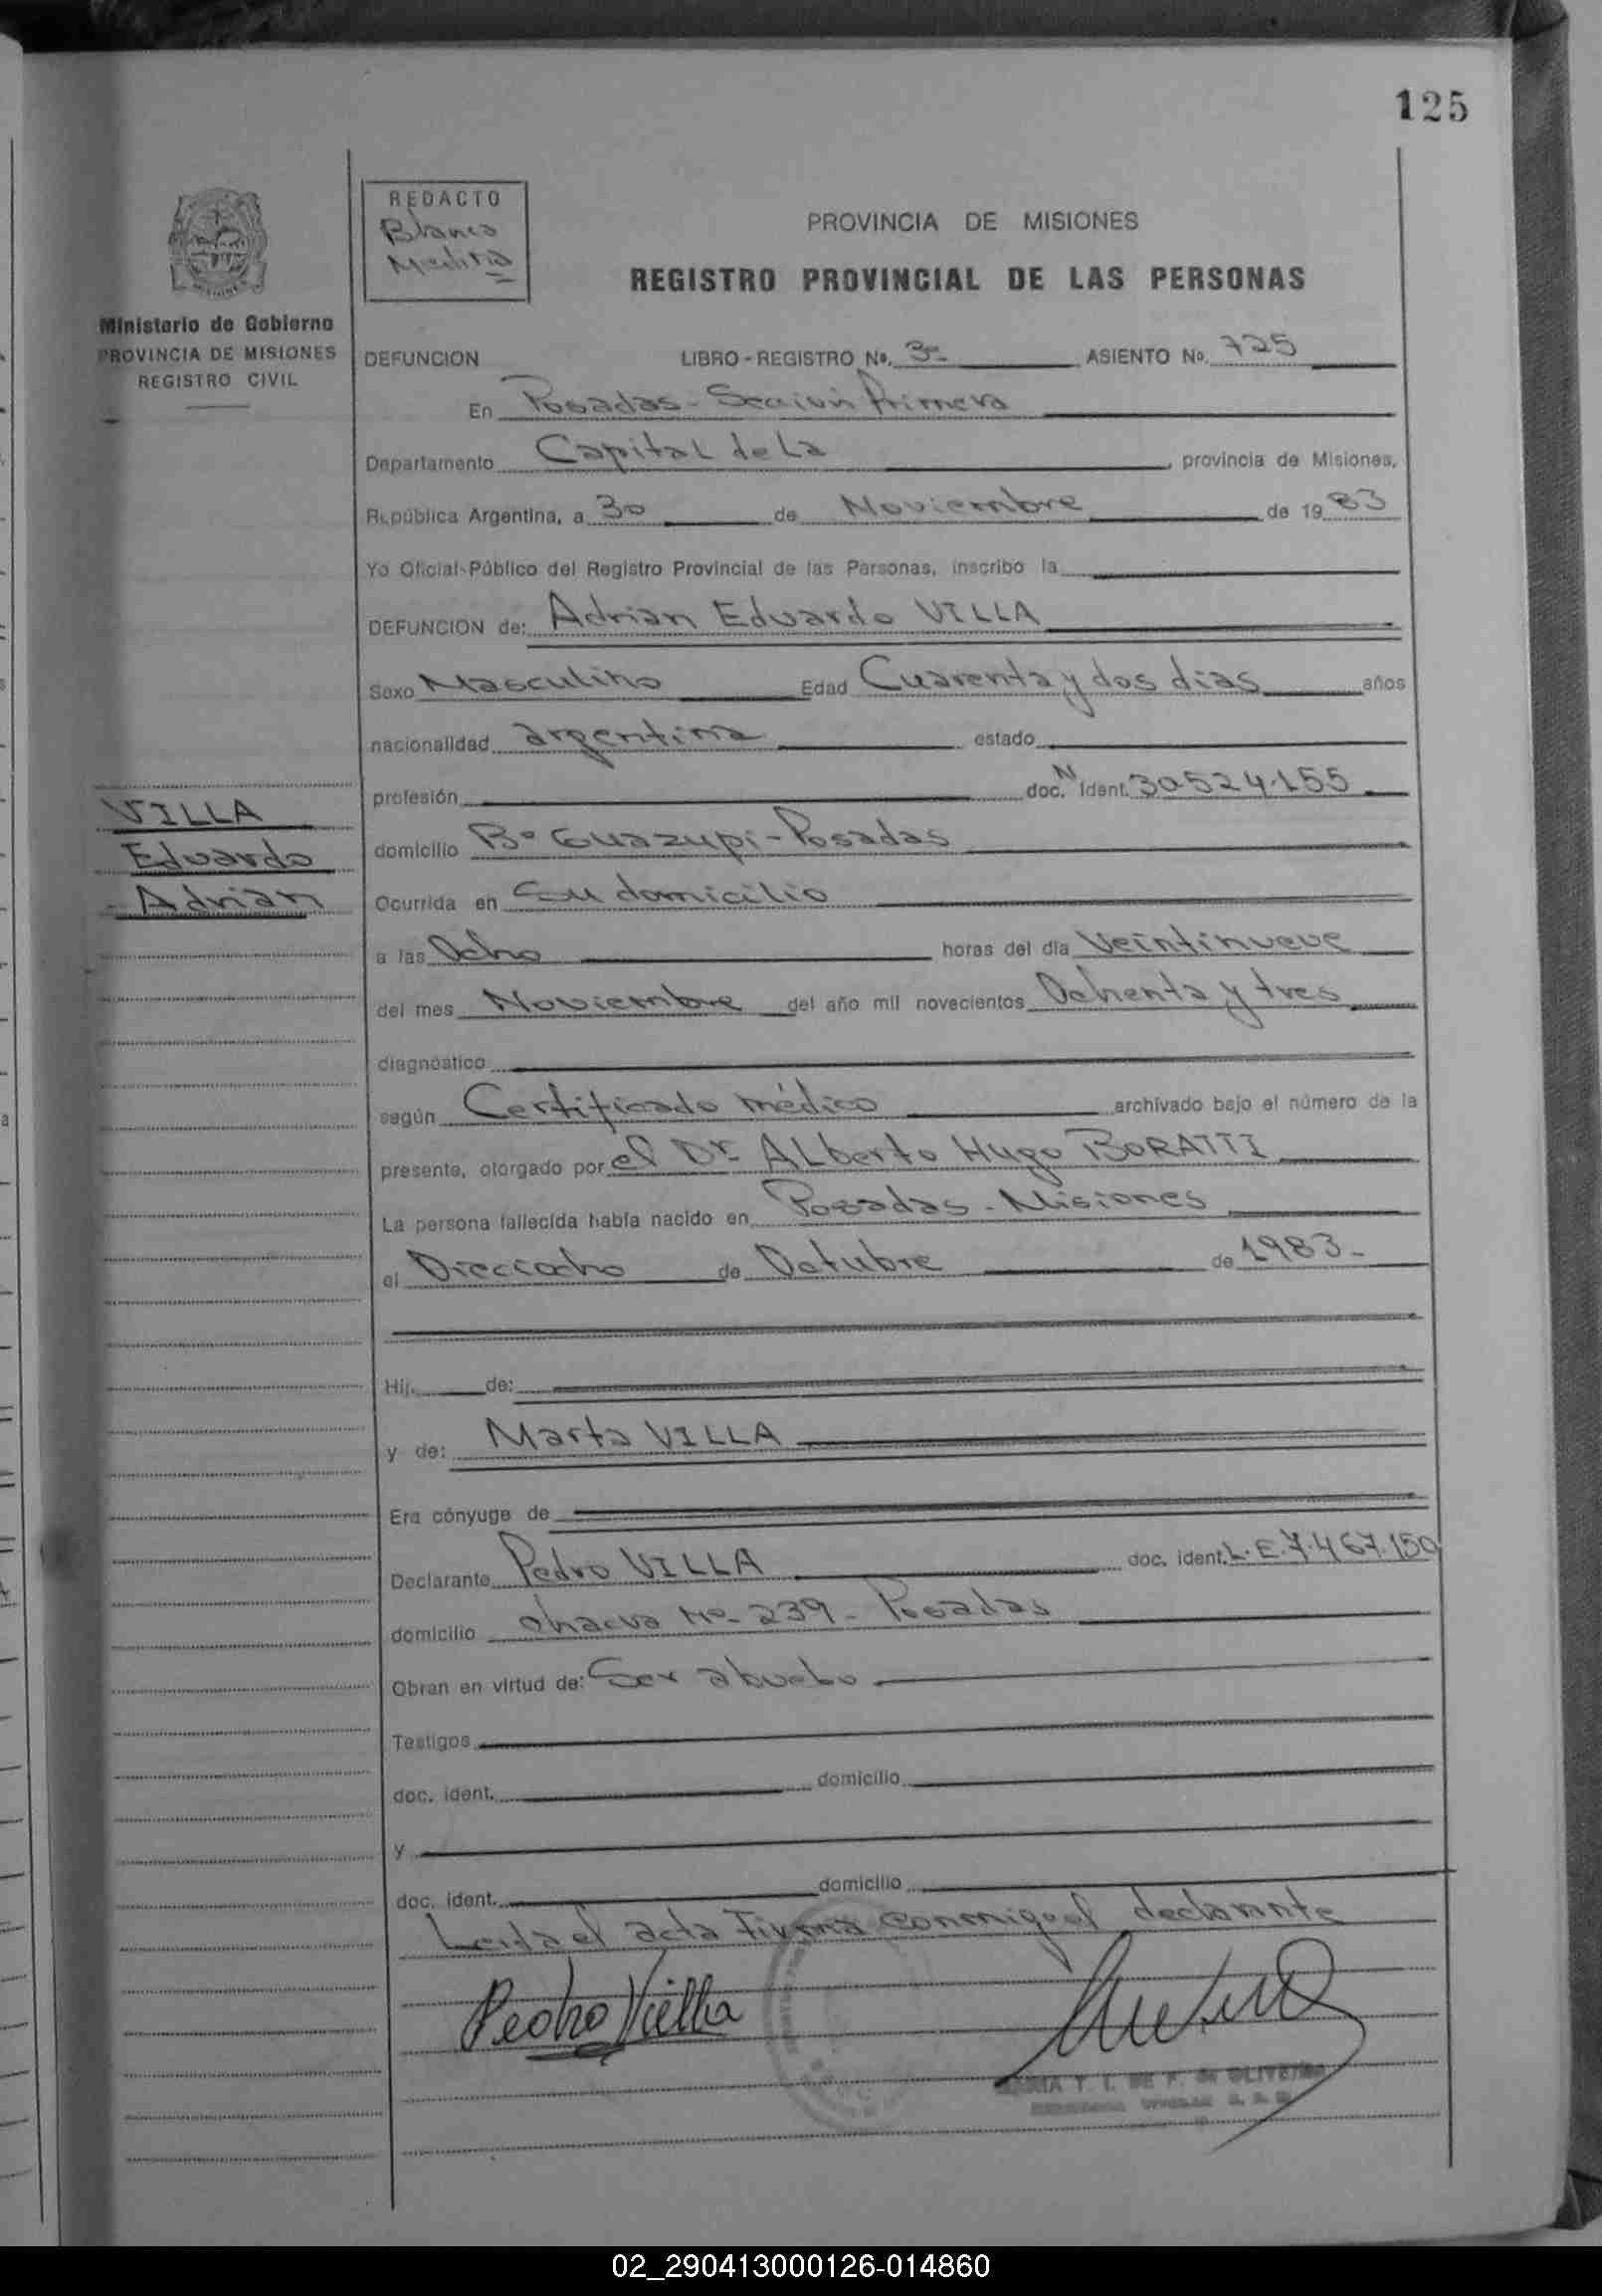 125
REDACTO
Blanca
PROVINCIA DE MISIONES
REGISTRO PROVINCIAL DE LAS PERSONAS
Ministerio de Gobierno
PROVINCIA DE MISIONES
REGISTRO CIVIL
DEFUNCION LIBRO-REGISTRO No. 3- ASIENTO No. 725
En Posadas - Sección Primera
Departamento Capital de La provincia de Misiones,
República Argentina, a 30 de Noviembre de 19 83
Yo Oficial Público del Registro Provincial de las Personas, inscribo la
DEFUNCION de: Adrian Eduardo VILLA
Sexo Masculino Edad Cuarenta y dos dias años
nacionalidad argentina estado
profesión doc. N Ident. 30.524.155
VILLA
Eduardo
Adrian
domicilio Bº Guazupi - Posadas
Ocurrida en Su domicilio
a las Ocho horas del día Veintinueve
del mes Noviembre del año mil novecientos Ochenta y tres
diagnóstico
según Certificado médico archivado bajo el número de la
presente, otorgado por el Dr. ALberto Hugo BORATTI
La persona fallecida había nacido en Posadas - Misiones
el Dieciocho de Octubre de 1983.-
Hij de:
y de: Marta VILLA
Era cónyuge de
Declarante Pedro VILLA doc. ident. L.E. 7.467.150
domicilio Nº 239 - Posadas
Obran en virtud de: Ser abuelo
Testigos
doc. ident. domicilio
y
doc. ident. domicilio
Leida el acta Firma conmigo el declarante
Pedro Villa
02_290413000126-014860